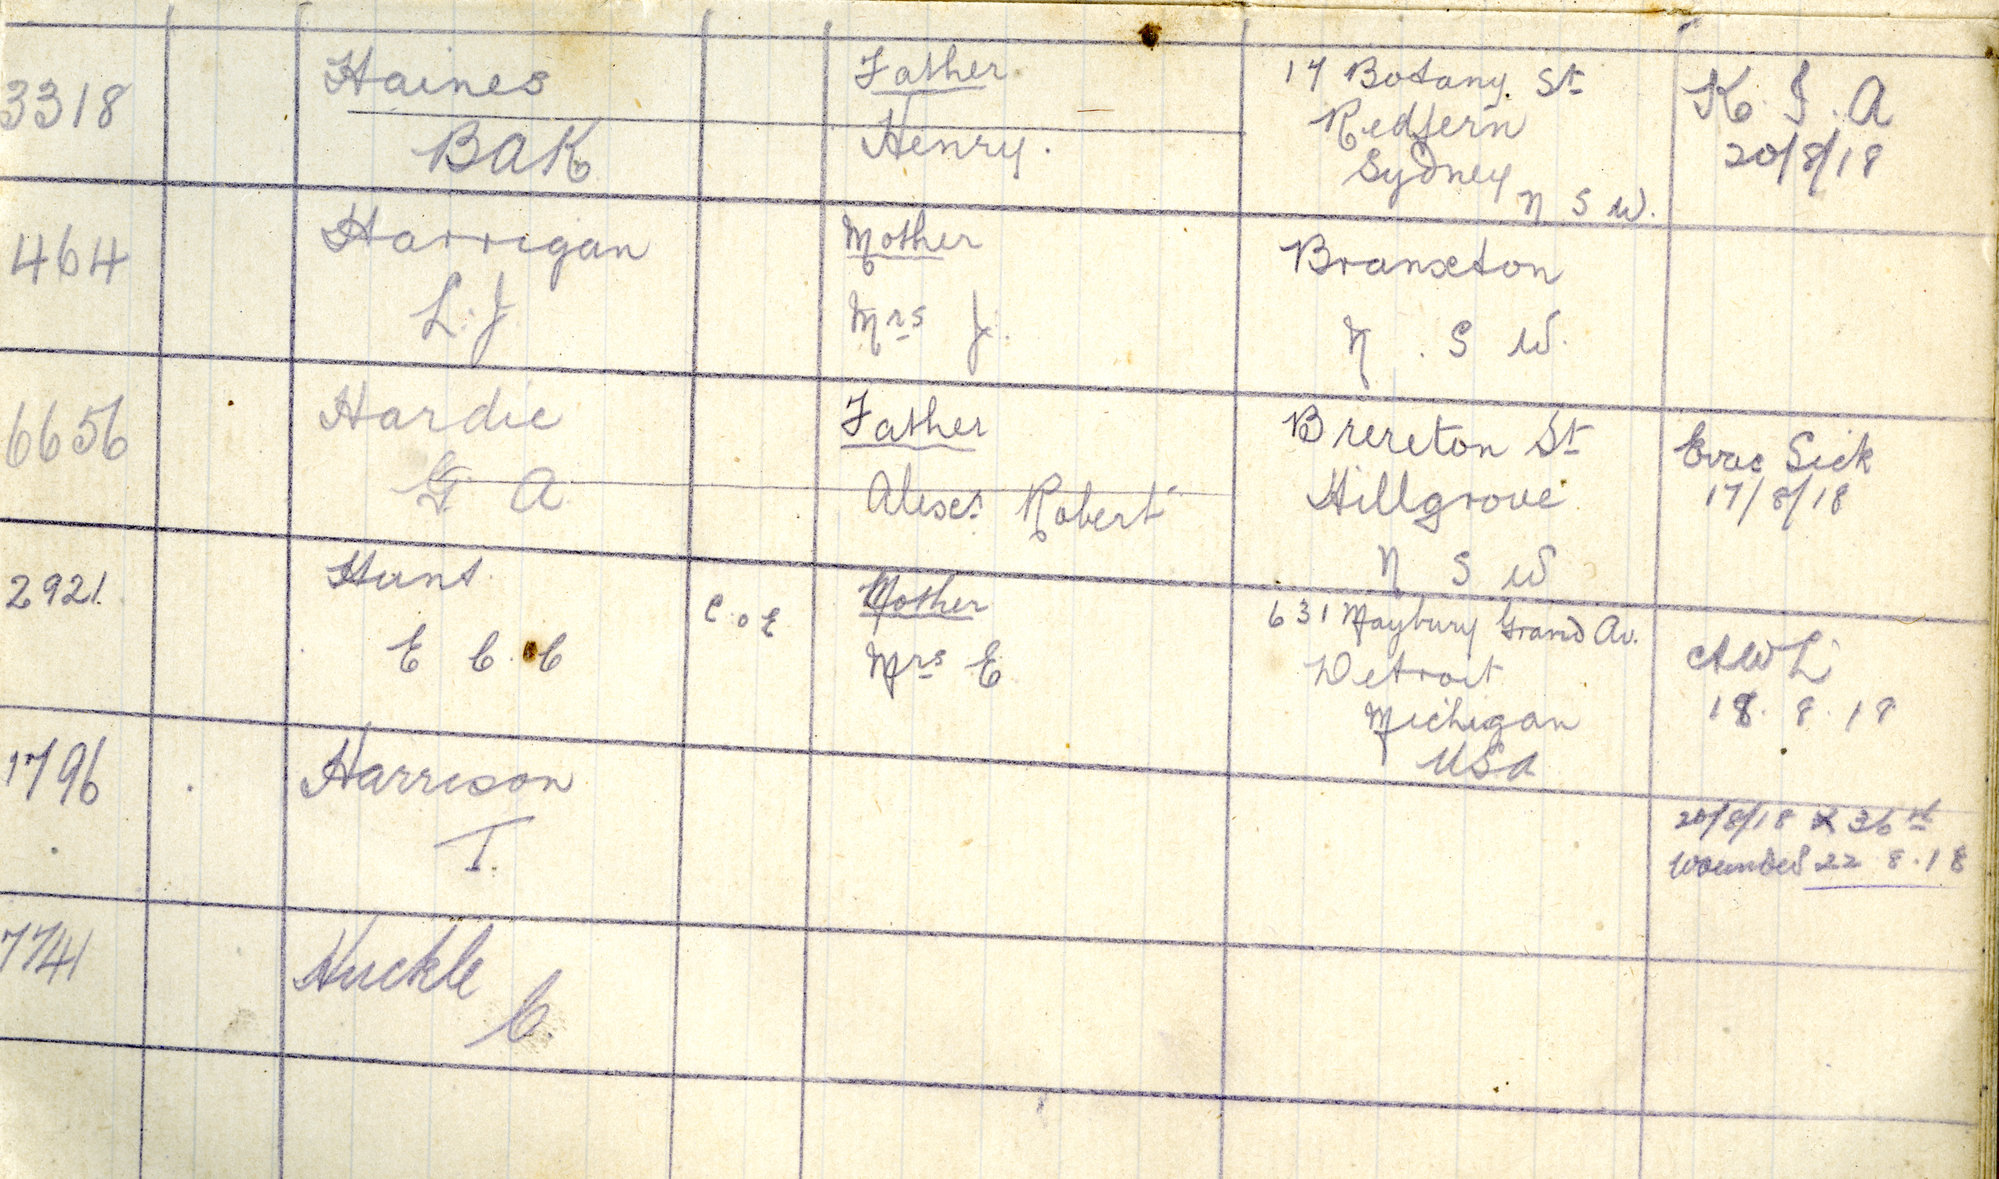 3318
Haines
BAK
Father
Henry.
17 Botany St
Redfern
Sydney
N S W.
K. I. A
20/8/18
464
Harrigan
L. J
Mother
Mrs J.
Branxton
N. S W.
6656
Hardie
G A
Father
Alexr Robert
Brereton St
Hillgrove
N S W
Evac Sick
17/8/18
2921.
Hunt
E C. C
C of E
Mother
Mrs E
631 Maybury Grand Av.
Detroit
Michigan
USA
AWL
18. 8. 18
1796
Harrison
T.
20/8/18 36
Wounded 22 8. 18
7741
Huckle
C